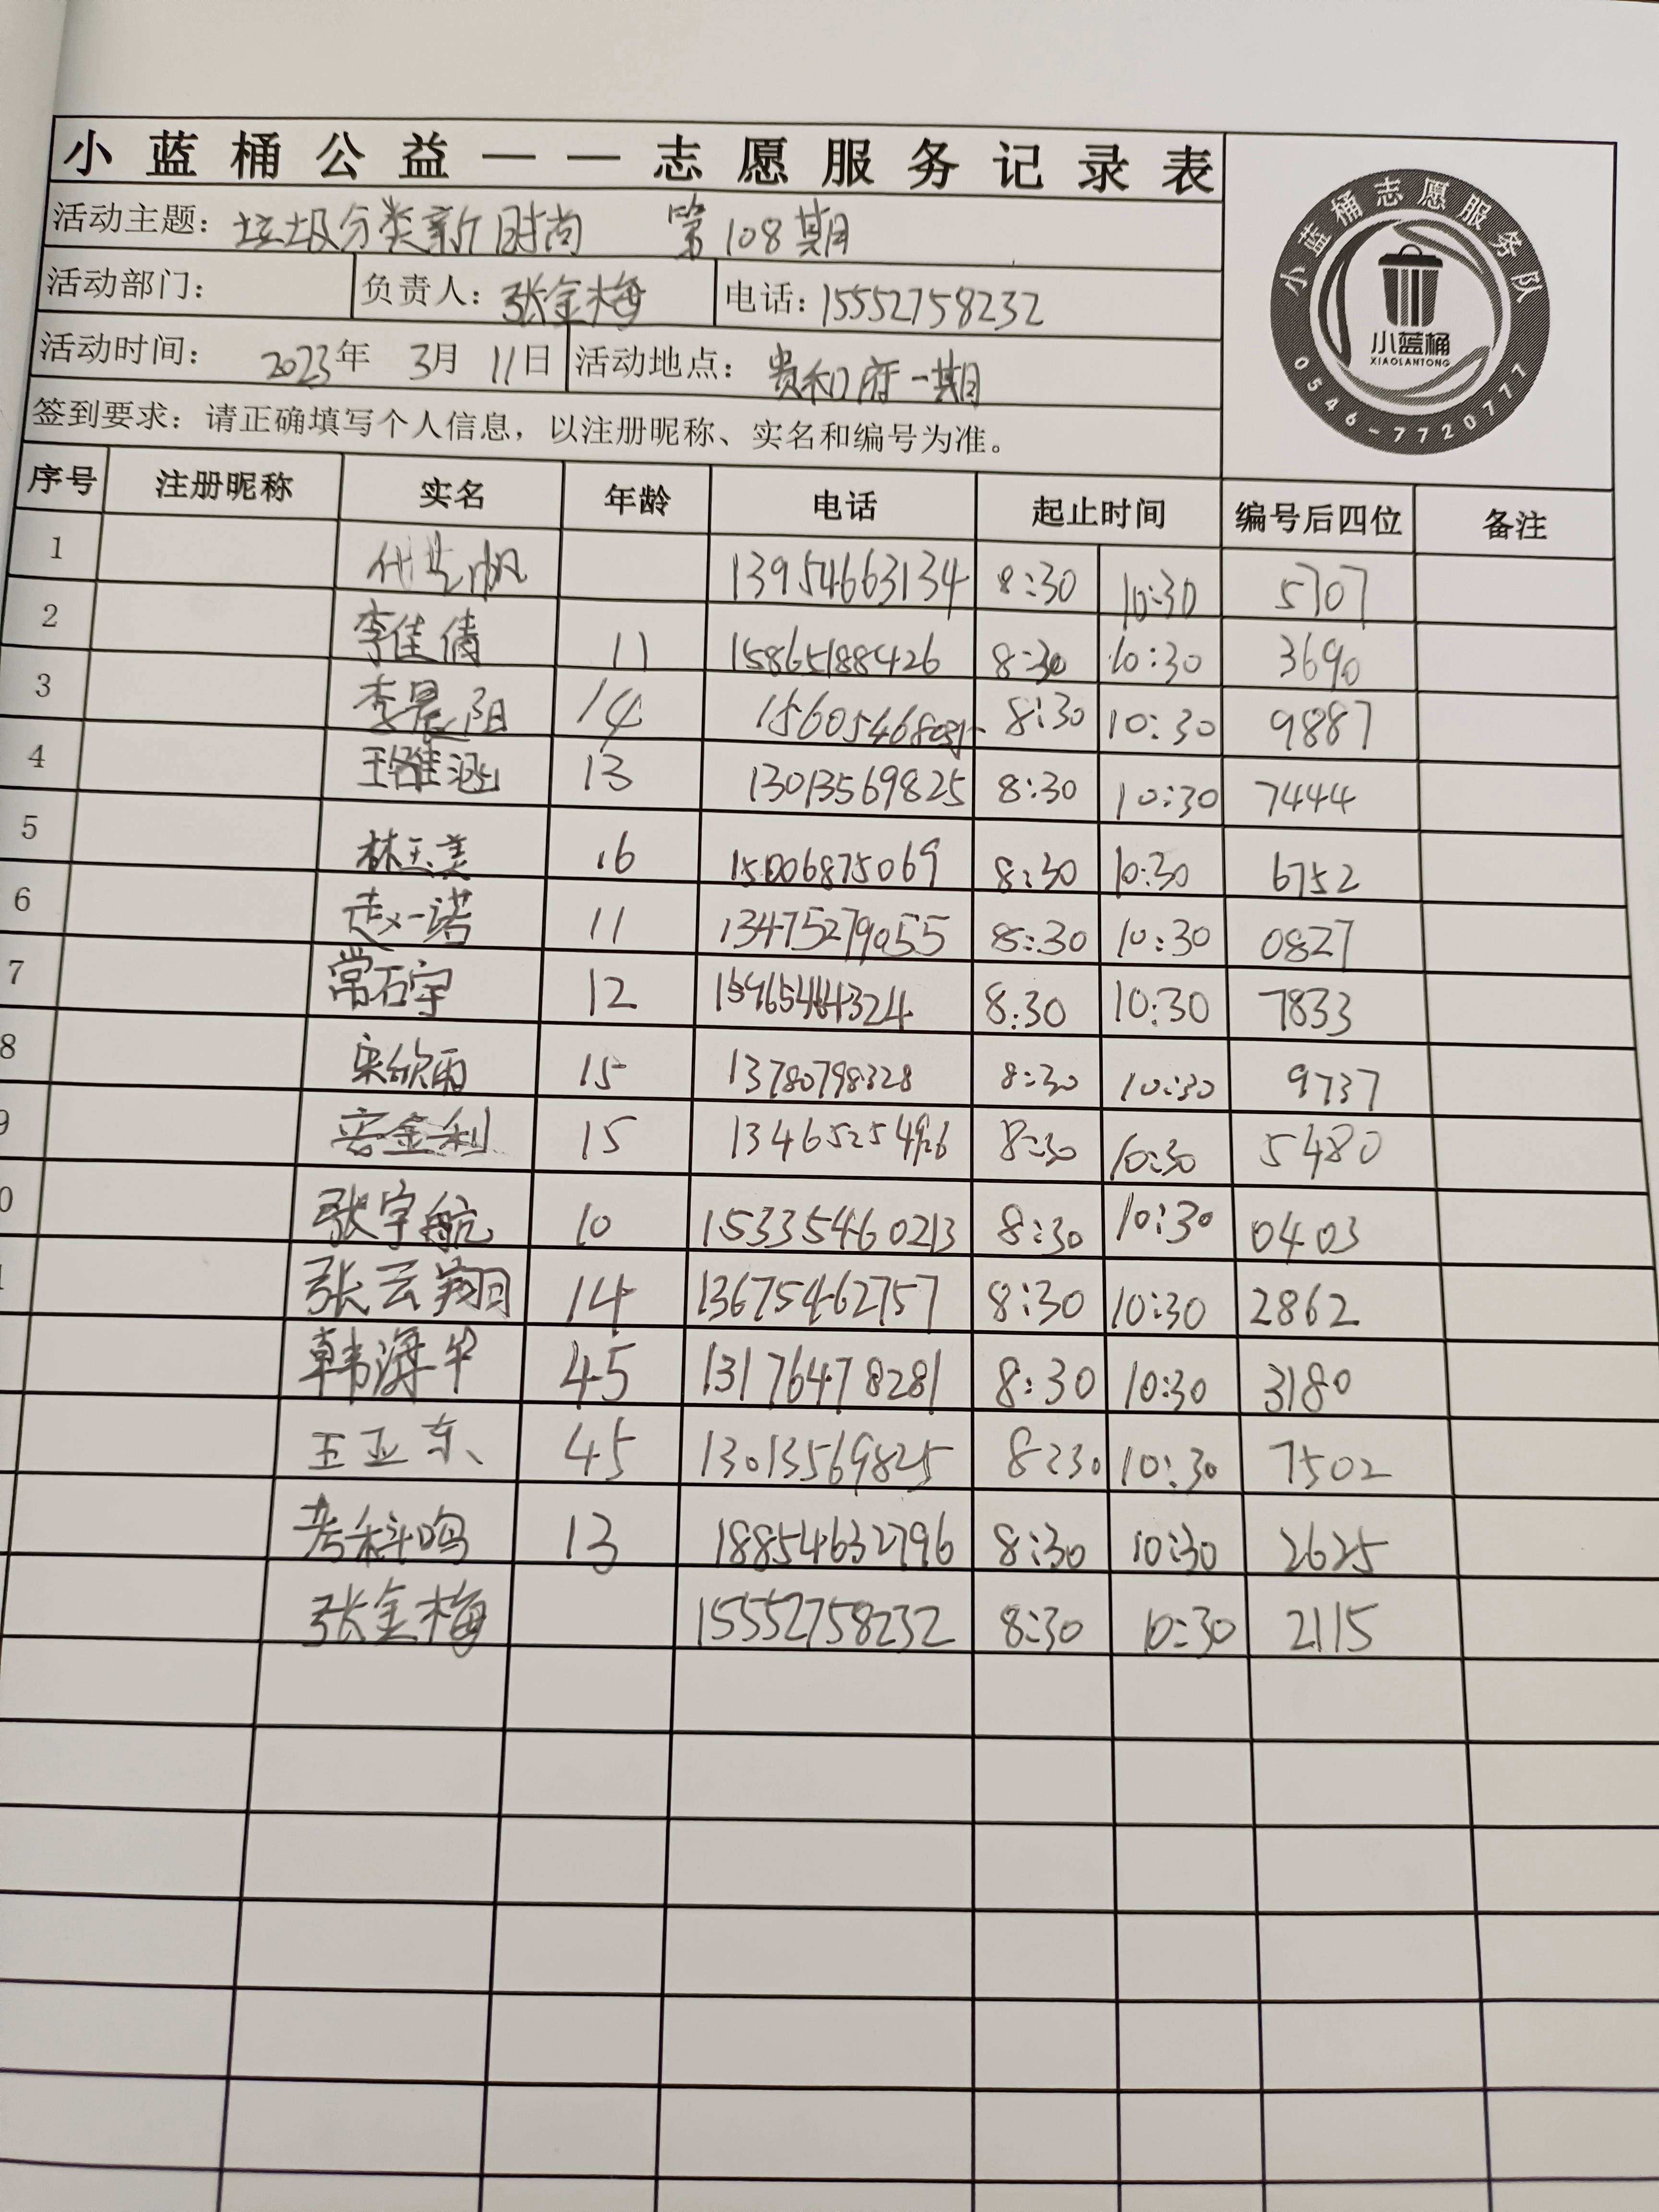 小蓝桶公益——志愿服务记录表
活动主题：垃圾分类新时尚 第108期
活动部门： 负责人：张金梅 电话：15552758232
活动时间： 2023年 3月 11日 活动地点：贵和府一期
签到要求：请正确填写个人信息，以注册昵称、实名和编号为准。
小蓝桶志愿服务队
小蓝桶
XIAOLANTONG
0546-7720777
序号 注册昵称 实名 年龄 电话 起止时间 编号后四位 备注
1 13954663134 8:30 10:30 5707
2 李佳倩 11 15865188426 8:30 10:30 3690
3 李晨阳 14 8:30 10:30 9887
4 13 13013569825 8:30 10:30 7444
5 林玉美 16 15006875069 8:30 10:30 6752
6 赵一诺 11 13475279055 8:30 10:30 0827
7 常石宇 12 8:30 10:30 7833
8 宋欣雨 15 13780798328 8:30 10:30 9737
9 15 8:30 10:30 5480
0 张宇航 10 15335460213 8:30 10:30 0403
张云翔 14 13675462757 8:30 10:30 2862
韩海华 45 13176478281 8:30 10:30 3180
王亚东 45 13013569825 8:30 10:30 7502
13 18854632796 8:30 10:30 2625
张金梅 15552758232 8:30 10:30 2115